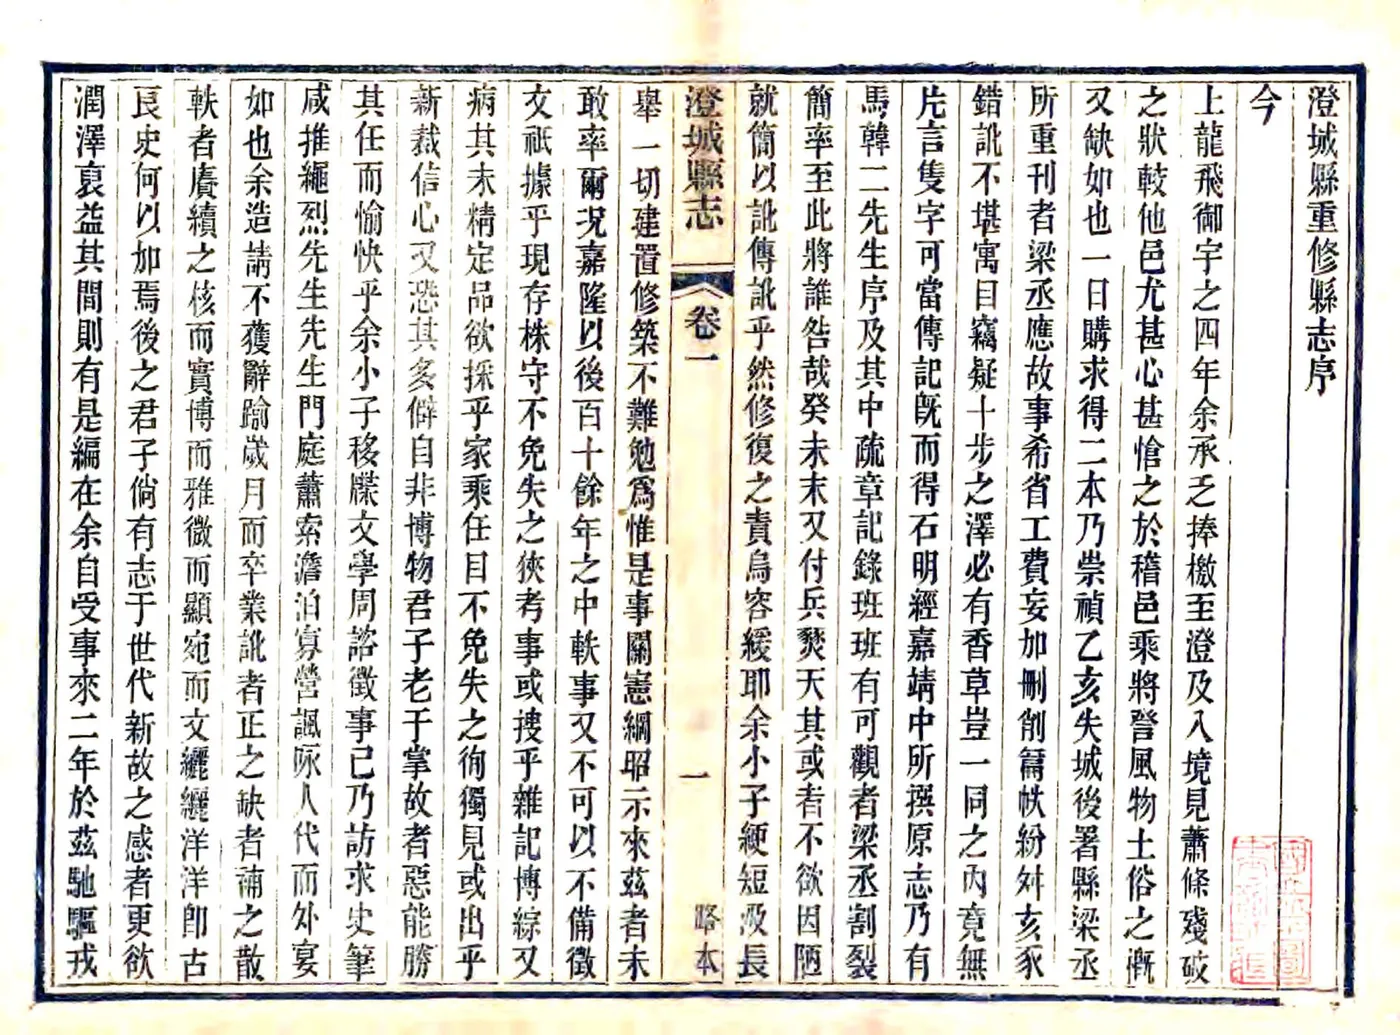 澄城縣重修縣志序
今
上龍飛御宇之四年余承乏捧檄至澄及入境見蕭條殘破
之狀較他邑尤甚心甚愴之於稽邑乘將詧風物土俗之漑
又缺如也一日購求得二本乃崇禎乙亥失城後署縣梁丞
所重刊者梁丞應故事希省工費妄加刪削篇帙紛舛亥豕
錯訛不堪寓目竊疑十步之澤必有香草豈一同之內竟無
片言隻字可當傳記旣而得石明經嘉靖中所撰原志乃有
馬韓二先生序及其中疏章記錄班班有可觀者梁丞割裂
簡率至此將誰咎哉癸未末又付兵燹天其或者不欲因陋
就簡以訛傳訛乎然修復之責烏容緩耶余小子綆短汲長
澄城縣志
卷一
一
略本
舉一切建置修築不難勉爲惟是事關憲綱昭示來茲者未
敢率爾况嘉隆以後百十餘年之中軼事又不可以不備徵
文祇據乎現存株守不免失之狹考事或摟乎雜記博綜又
病其未精定品欲採乎家乘任目不免失之徇獨見或出乎
新裁信心又恐其多僻自非博物君子老于掌故者惡能勝
其任而愉快乎余小子移牒文學周諮徵事已乃訪求史筆
咸推繩烈先生先生門庭蕭索澹泊寡營諷咏人代而外宴
如也余造請不獲辭踰歲月而卒業訛者正之缺者補之散
軼者賡續之核而實博而雅微而顯宛而文纚纚洋洋卽古
良史何以如焉後之君子倘有志于世代新故之感者更欲
潤澤裒益其間則有是編在余自受事來二年於茲馳驅戎